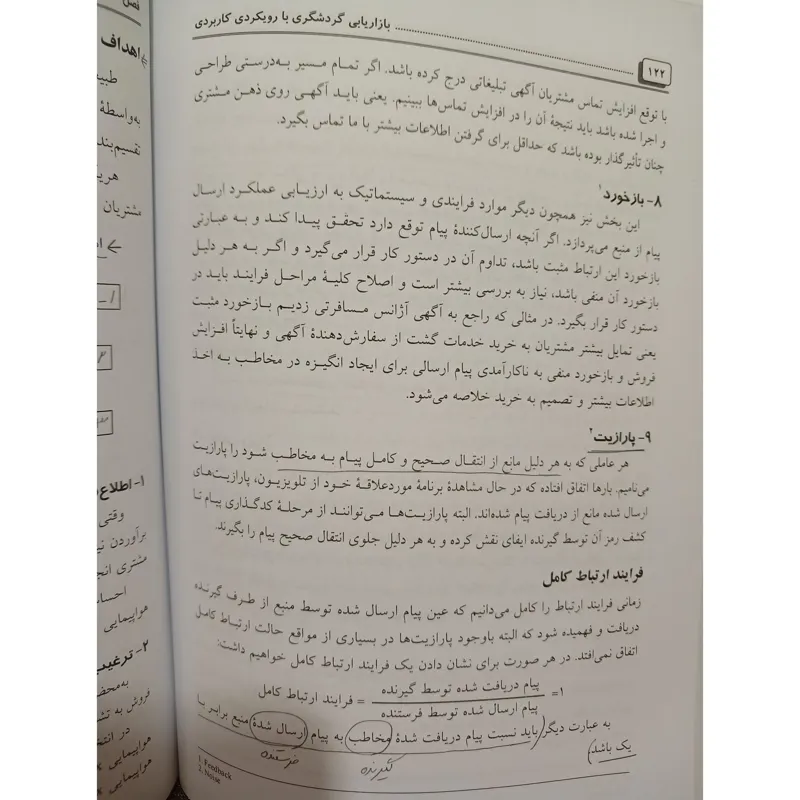 ۱۲۲ بازاریابی گردشگری با رویکردی کاربردی
با توقع افزایش تماس مشتریان آگهی تبلیغاتی درج کرده باشد. اگر تمام مسیر به‌درستی طراحی
و اجرا شده باشد باید نتیجۀ آن را در افزایش تماس‌ها ببینیم. یعنی باید آگهی روی ذهن مشتری
چنان تأثیرگذار بوده باشد که حداقل برای گرفتن اطلاعات بیشتر با ما تماس بگیرد.
۸- بازخورد۱
این بخش نیز همچون دیگر موارد فرایندی و سیستماتیک به ارزیابی عملکرد ارسال
پیام از منبع می‌پردازد. اگر آنچه ارسال‌کنندۀ پیام توقع دارد تحقق پیدا کند و به عبارتی
بازخورد این ارتباط مثبت باشد، تداوم آن در دستور کار قرار می‌گیرد و اگر به هر دلیل
بازخورد آن منفی باشد، نیاز به بررسی بیشتر است و اصلاح کلیۀ مراحل فرایند باید در
دستور کار قرار بگیرد. در مثالی که راجع به آگهی آژانس مسافرتی زدیم بازخورد مثبت
یعنی تمایل بیشتر مشتریان به خرید خدمات گشت از سفارش‌دهندۀ آگهی و نهایتاً افزایش
فروش و بازخورد منفی به ناکارآمدی پیام ارسالی برای ایجاد انگیزه در مخاطب به اخذ
اطلاعات بیشتر و تصمیم به خرید خلاصه می‌شود.
۹- پارازیت۲
هر عاملی که به هر دلیل مانع از انتقال صحیح و کامل پیام به مخاطب شود را پارازیت
می‌نامیم. بارها اتفاق افتاده که در حال مشاهدۀ برنامۀ موردعلاقۀ خود از تلویزیون، پارازیت‌های
ارسال شده مانع از دریافت پیام شده‌اند. البته پارازیت‌ها می‌توانند از مرحلۀ کدگذاری پیام تا
کشف رمز آن توسط گیرنده ایفای نقش کرده و به هر دلیل جلوی انتقال صحیح پیام را بگیرند.
فرایند ارتباط کامل
زمانی فرایند ارتباط را کامل می‌دانیم که عین پیام ارسال شده توسط منبع از طرف گیرنده
دریافت و فهمیده شود که البته باوجود پارازیت‌ها در بسیاری از مواقع حالت ارتباط کامل
اتفاق نمی‌افتد. در هر صورت برای نشان دادن یک فرایند ارتباط کامل خواهیم داشت:
پیام دریافت شده توسط گیرنده
۱= = فرایند ارتباط کامل
پیام ارسال شده توسط فرستنده
به عبارت دیگر باید نسبت پیام دریافت شدۀ مخاطب به پیام ارسال شدۀ منبع برابر با
یک باشد.
گیرنده فرستنده
1. Feedback
2. Noise
فصل
اهداف
طبیع
به‌واسطۀ
تقسیم‌بند
هریک
مشتریان
۱- اطلاع
وقتی
برآوردن نیا
مشتری انج
احساس
هواپیمایی
۲- ترغیب
به‌محض
فروش به تش
در انتخ
هواپیمایی
هواپیمایی